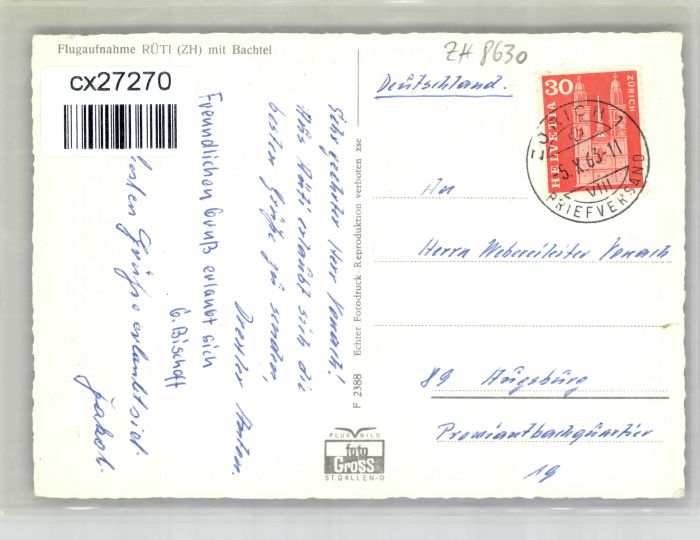 Flugaufnahme RÜTI (ZH) mit Bachtel
cx27270
ZH 8630
Deutschland.
30
HELVETIA
ZÜRICH
ZÜRICH 1
5.X.63-11
VIII
BRIEFVERSAND
An
Herrn Webereileiter Vonach
89 Augsburg
Proviantbachquartier
19
Sehr geehrter Herr Vonach!
Aus Rüti erlaubt sich die
besten Grüße zu senden,
Anton.
Freundlichen Gruß erlaubt sich
G. Bischoff
besten Grüße erlaubt sich
Jakob.
F 2388 Echter Fotodruck Reproduktion verboten zse
FLUGBILD
foto
GROSS
ST. GALLEN-O